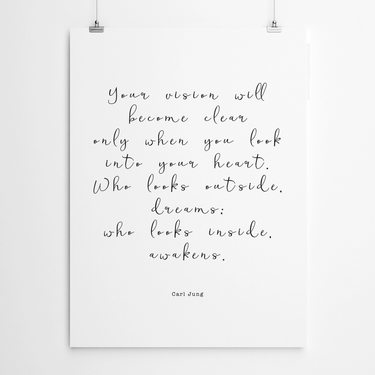 Your vision will
become clear
only when you look
into your heart.
Who looks outside,
dreams;
who looks inside,
awakens.
Carl Jung